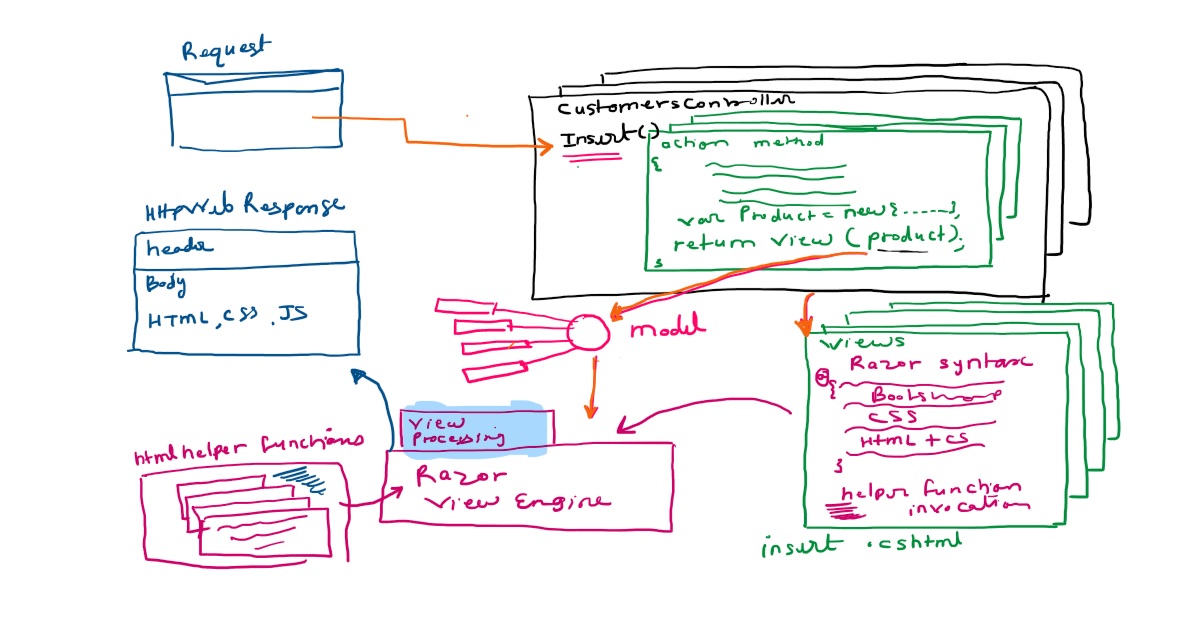 Request
CustomersController
Insert()
action method
{
var Product = new{......},
return view (product);
}
HttpWeb Response
header
Body
HTML, CSS, JS
model
views
Razor syntax
@{
Bootstrap
CSS
HTML + CS
}
helper function
invocation
insert .cshtml
view
processing
Razor
View Engine
html helper functions